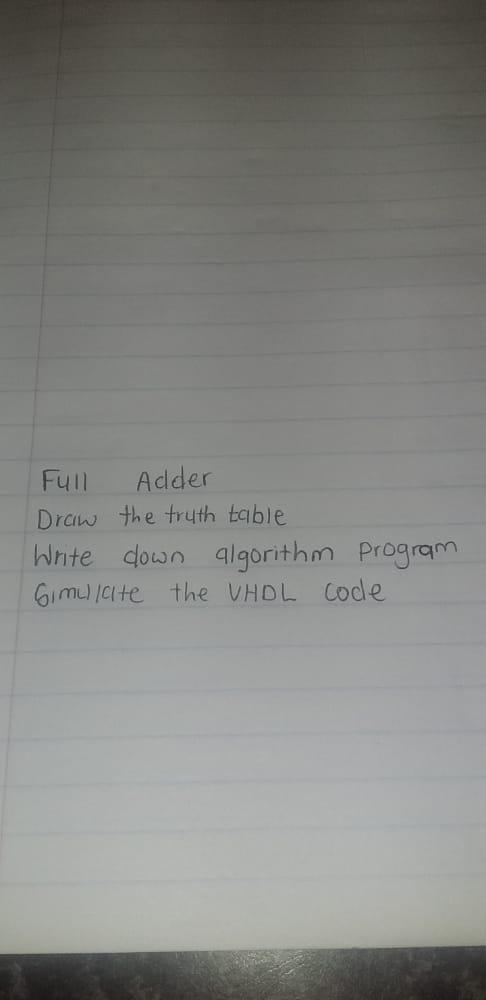 Full Adder
Draw the truth table
Write down algorithm program
Simulate the VHDL code